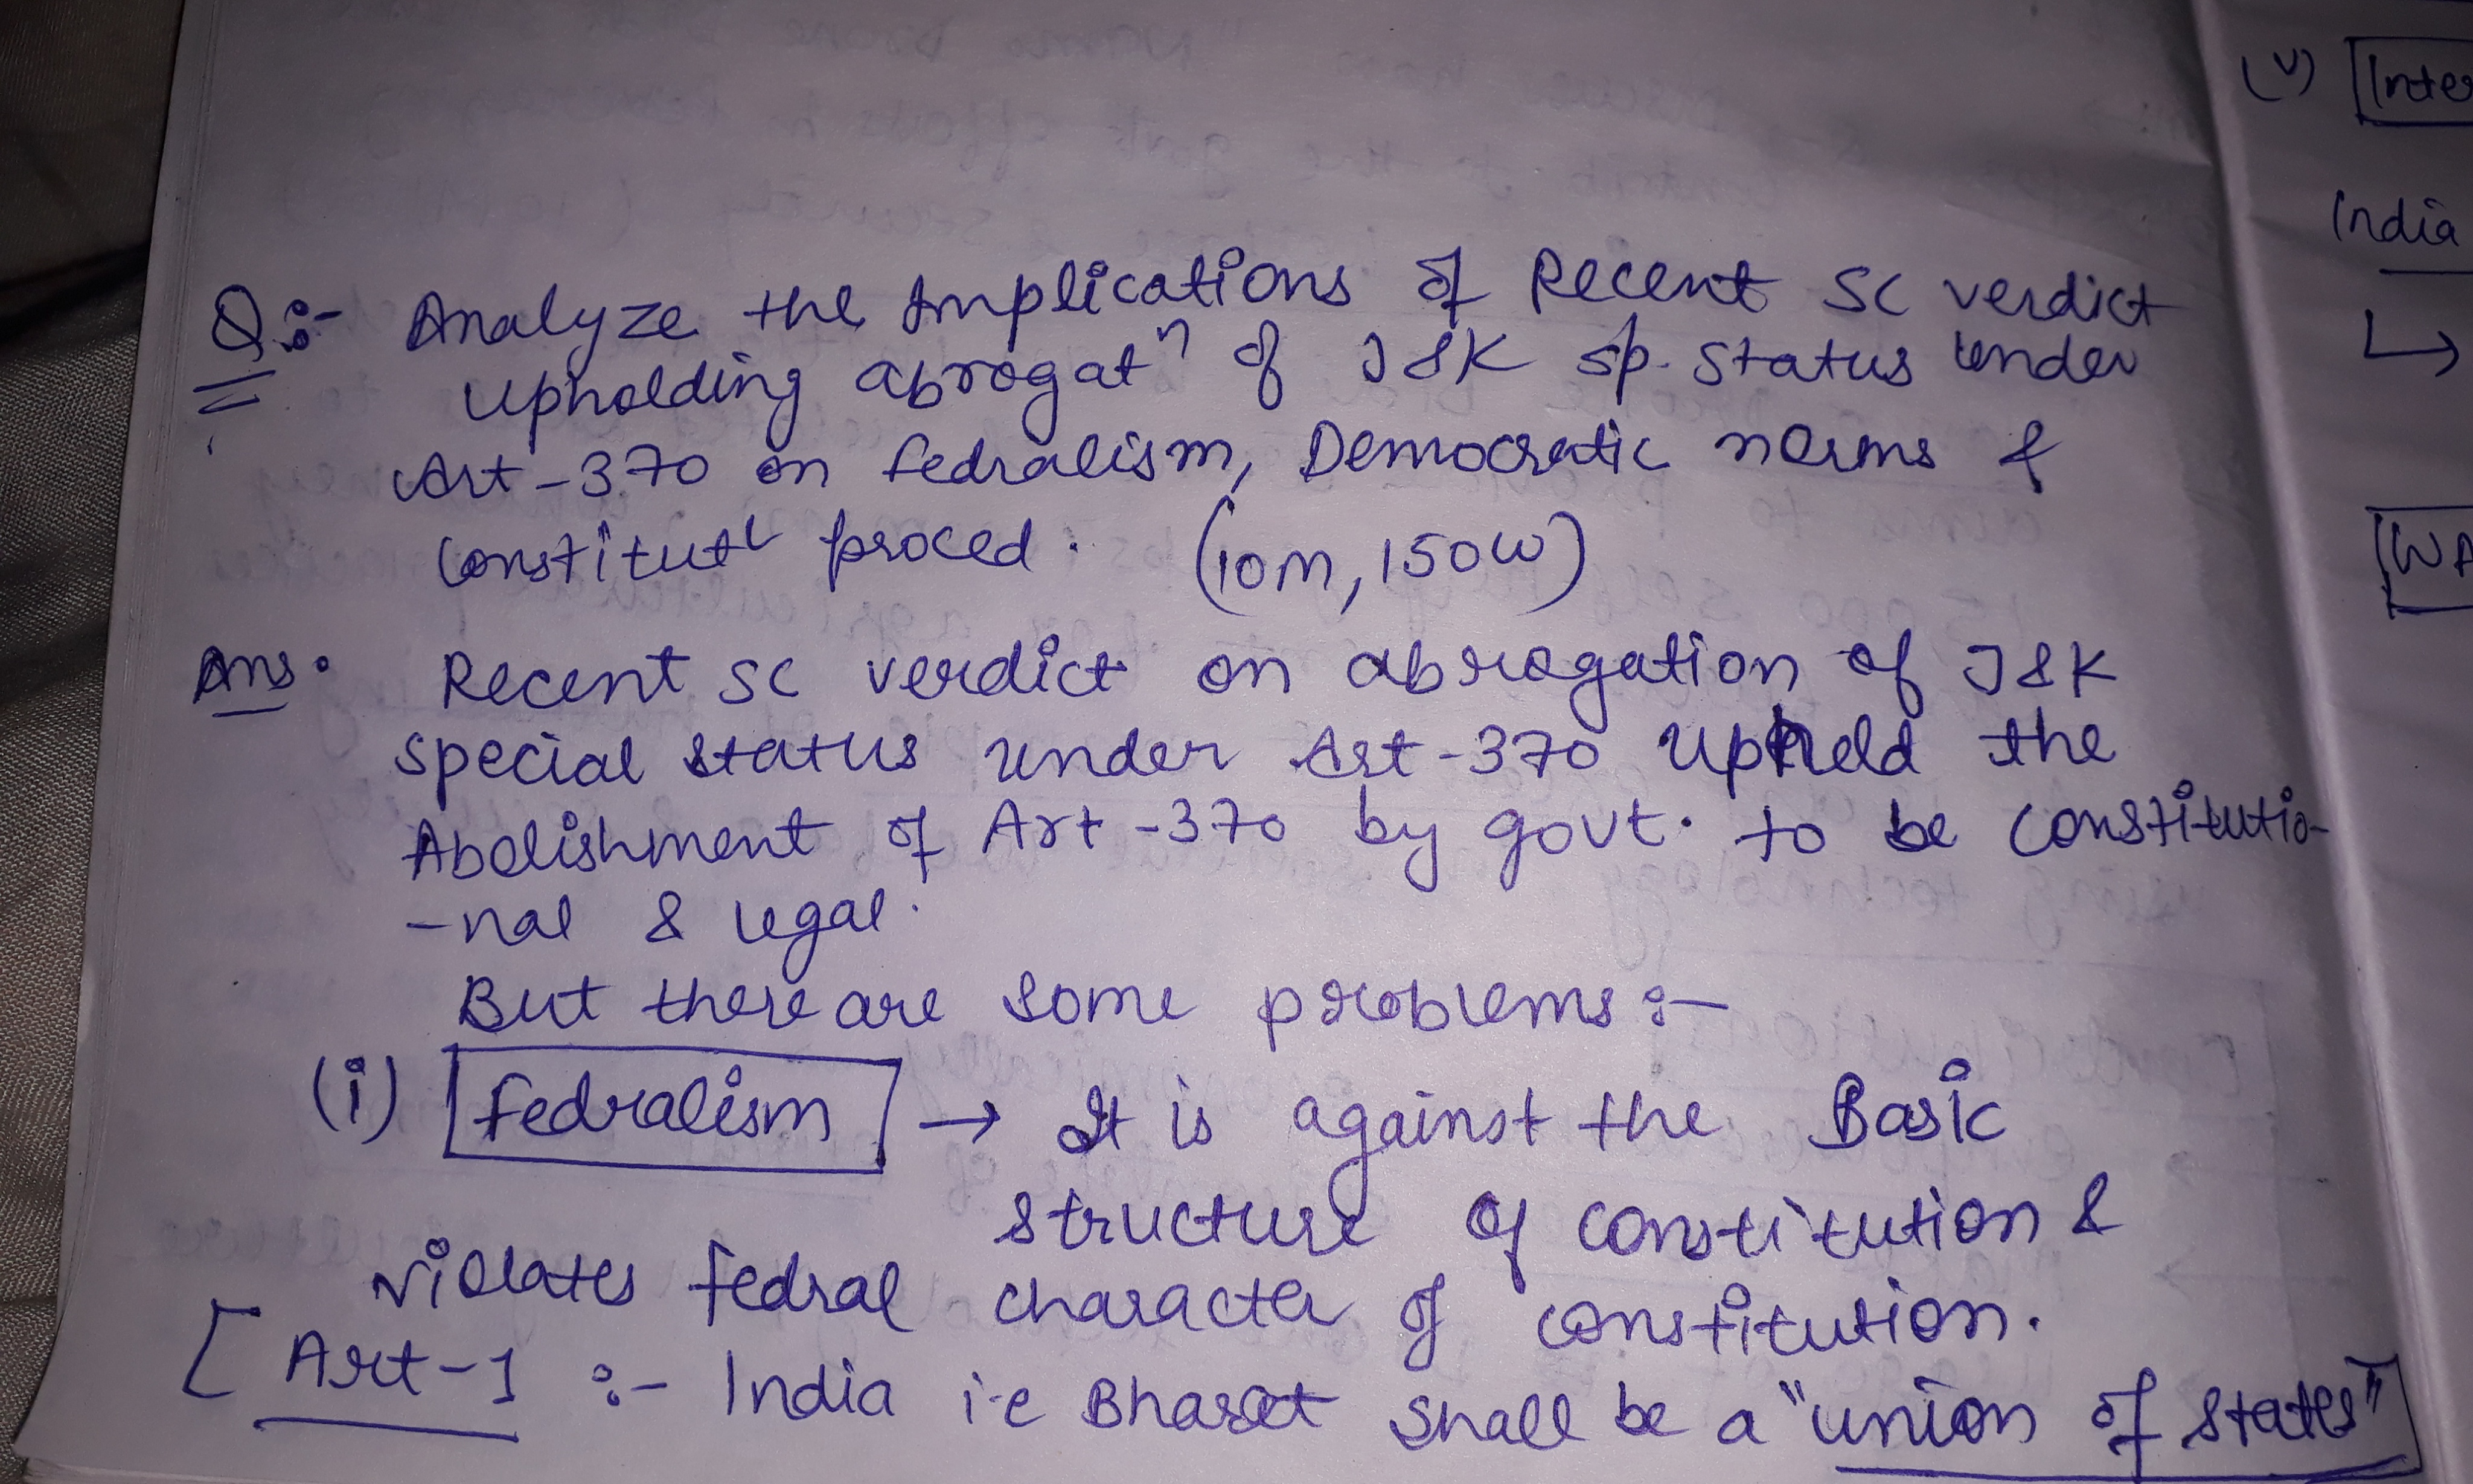 Q:- Analyze the Implications of Recent SC verdict
upholding abrogatⁿ of J&K sp. status under
Art-370 on fedralism, Democratic norms &
constitutˡ proced. (10m, 150w)
Ans. Recent SC verdict on abrogation of J&K
special status under Art-370 upheld the
Abolishment of Art-370 by govt. to be constitutio-
-nal & legal.
But there are some problems:-
(i) fedralism → It is against the Basic
structure of constitution &
violates fedral character of constitution.
[Art-1 :- India i.e Bharat shall be a "union of states"]
(v) Inter
India
↳
WA